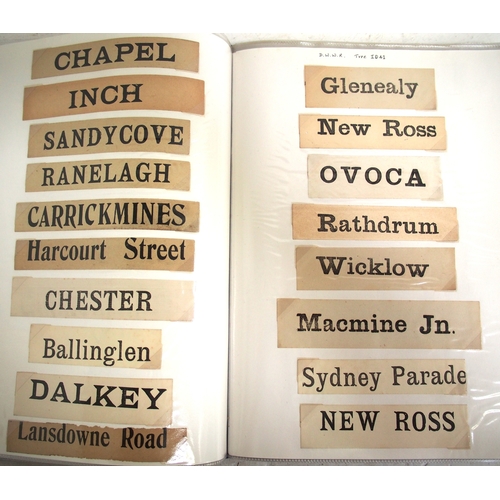 CHAPEL
INCH
SANDYCOVE
RANELAGH
CARRICKMINES
Harcourt Street
CHESTER
Ballinglen
DALKEY
Lansdowne Road
Glenealy
New Ross
OVOCA
Rathdrum
Wicklow
Macmine Jn.
Sydney Parade
NEW ROSS